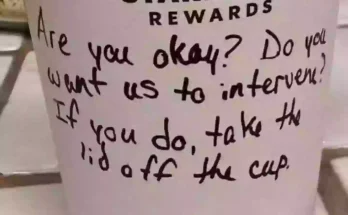 REWARDS
Are you okay? Do you
want us to intervene?
If you do, take the
lid off the cup.